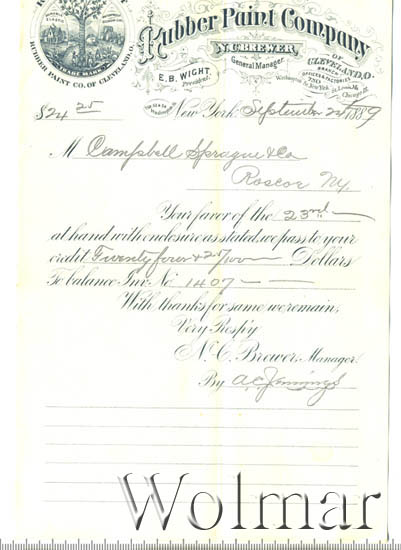 Rubber Paint Company
OF
CLEVELAND, O.
N. C. BREWER,
General Manager.
E. B. WIGHT,
President.
BRANCH
OFFICES & FACTORIES
New York
St. Louis, Mo
Chicago, Ill
RUBBER PAINT CO. OF CLEVELAND, O.
TRADE MARK
$24 25
New York, September 24 1889
M Campbell Sprague & Co
Roscoe Ny.
Your favor of the 23rd
at hand with enclosure as stated, we pass to your
credit Twenty four & 25/100 Dollars
To balance Inv. No 1407
With thanks for same we remain,
Very Respy
N. C. Brewer, Manager.
By A C Jennings
Wolmar